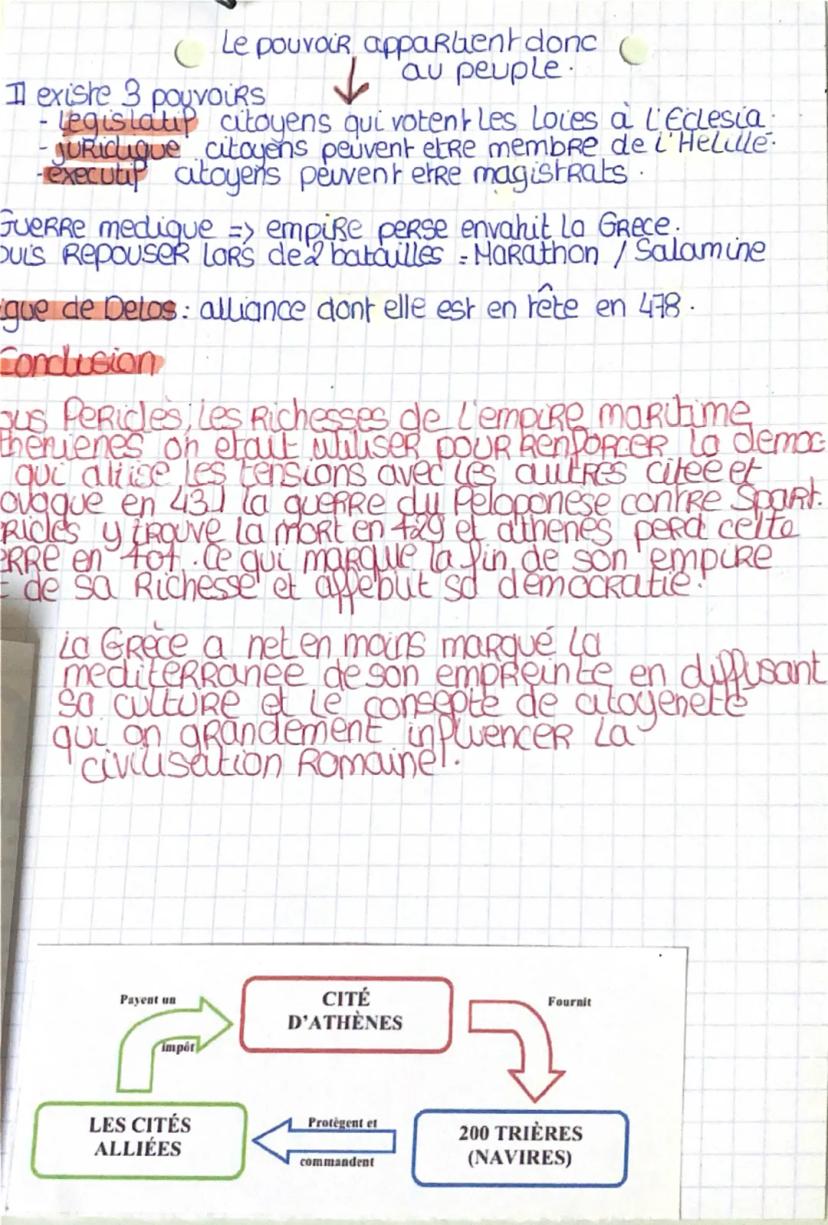 Le pouvoir appartient donc
au peuple.
Il existe 3 pouvoirs
- législatif citoyens qui votent les loies à l'Eclesia.
- juridique citoyens peuvent etre membre de l'Helillé.
- executif citoyens peuvent etre magistrats.
Guerre medique => empire perse envahit la Grece.
puis repouser lors de 2 batailles = Marathon / Salamine
gue de Delos : alliance dont elle est en tête en 478.
Conclusion
ous Periclès, les richesses de l'empire maritime
theniènes on etait utiliser pour renforcer la democ
qui attise les tensions avec les autres citée et
ovoque en 431 la guerre du Peloponese contre Spart.
riclès y trouve la mort en 429 et athènes perd cette
erre en 404. Ce qui marque la fin de son empire
de sa richesse et affebut sa démocratie.
La Grèce a net en moins marqué la
mediterranée de son empreinte en diffusant
sa culture et le consepte de citoyeneté
qui on grandement influencer la
civilisation Romaine.
Payent un
impôt
CITÉ
D'ATHÈNES
Fournit
LES CITÉS
ALLIÉES
Protègent et
commandent
200 TRIÈRES
(NAVIRES)